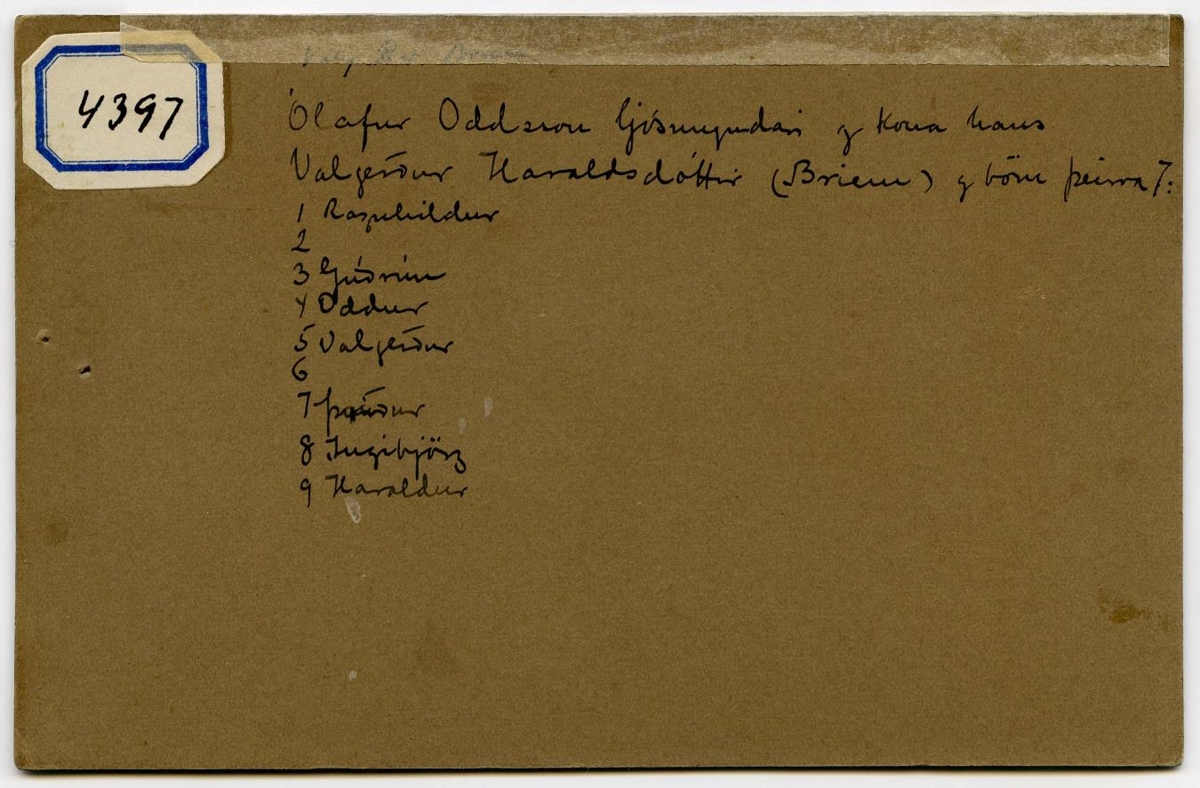 4397
Ólafur Oddsson ljósmyndari og kona hans
Valgerður Haraldsdóttir (Briem) og börn þeirra 7:
1 Ragnhildur
2
3 Guðrún
4 Oddur
5 Valgerður
6
7 Þuríður
8 Ingibjörg
9 Haraldur